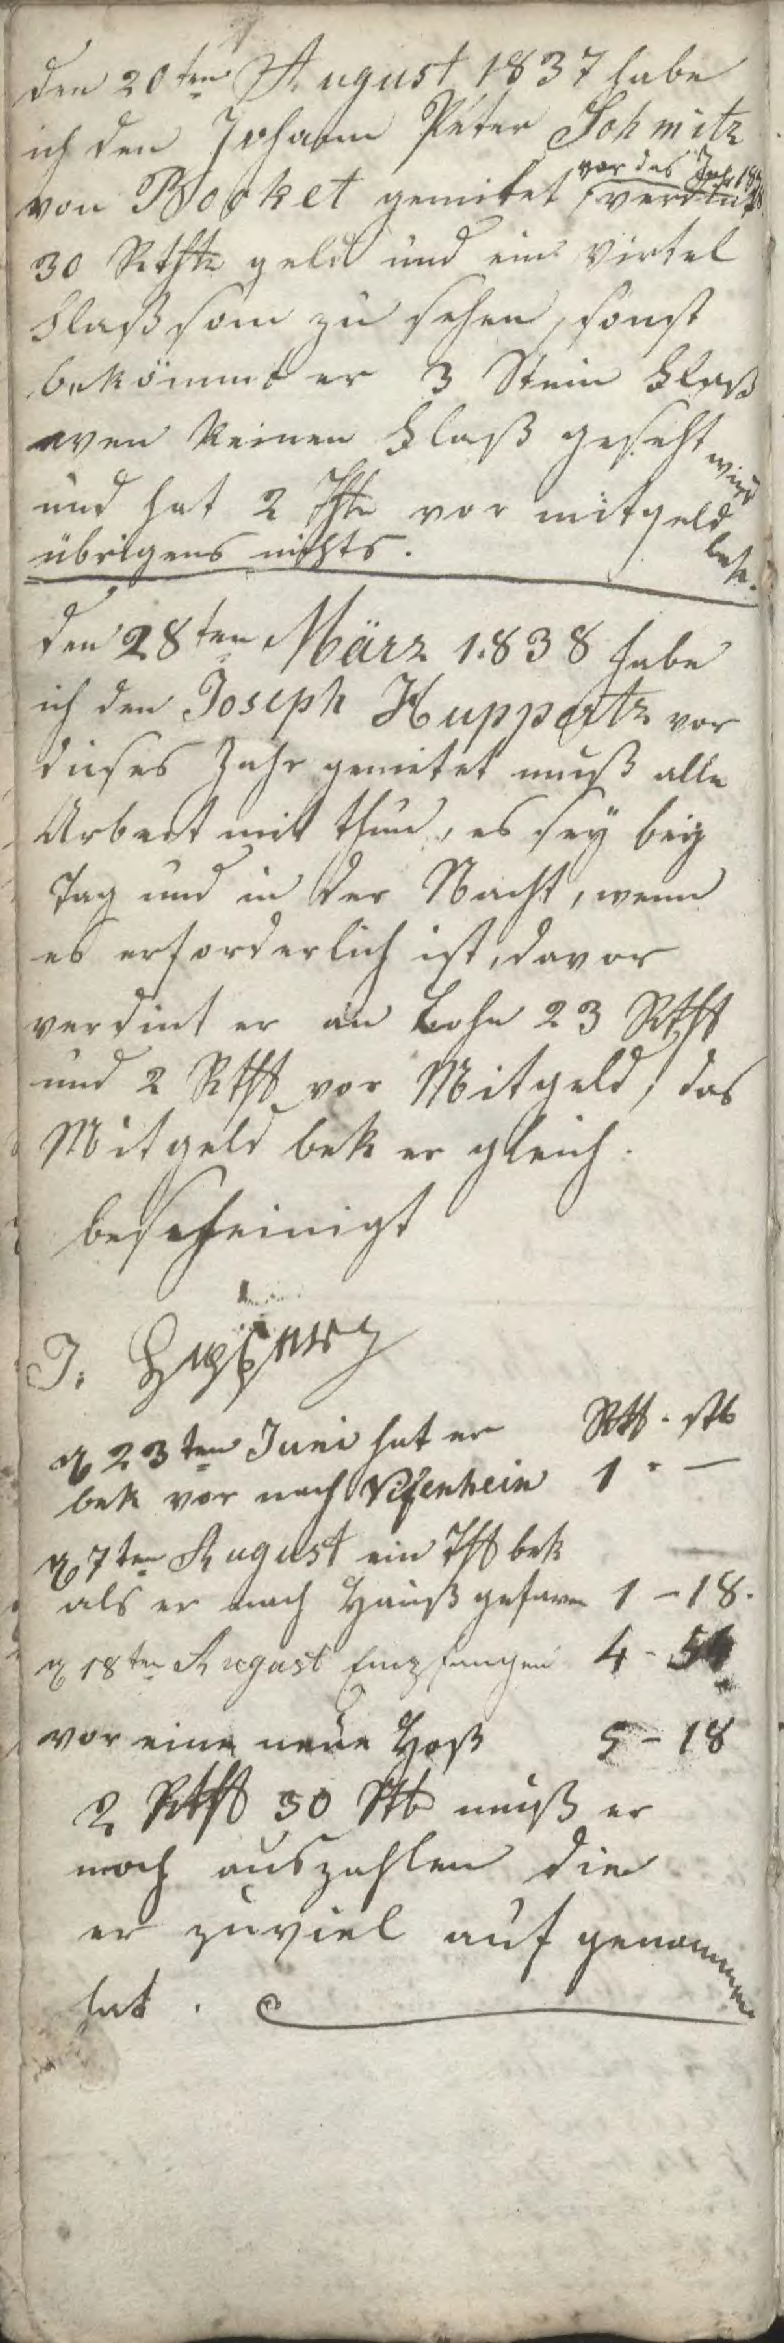 den 20ten August 1837 habe
ich den Johann Peter Schmitz
von Bocket gemitet, verdint
vor das Jahr 1838
30 Rthlr geld und ein virtel
Flaßsom zu sehen, sonst
bekömmt er 3 Stein Flaß
wen keinen Flaß geseht wird
und hat 2 Thlr vor mitgeld
übrigens nichts. bek.
den 28ten März 1838 habe
ich den Joseph Huppertz vor
dieses Jahr gemitet muß alle
Arbeit mit thun, es seÿ beÿ
Tag und in der Nacht, wenn
es erforderlich ist, davor
verdint er an Lohn 23 Rtht
und 2 Rtht vor Mitgeld, das
Mitgeld bek er gleich.
bescheinigt
J:
23ten Juni hat er Rth. stb
bek vor nach 1 . —
7ten August ein Tht bek
als er nach Hauß gefaren 1 – 18.
18ten August Empfangen 4 –
vor eine neue Hoß 5 – 18
2 Rtht 30 Stb muß er
noch auszahlen die
er zuviel auf genommen
hat .